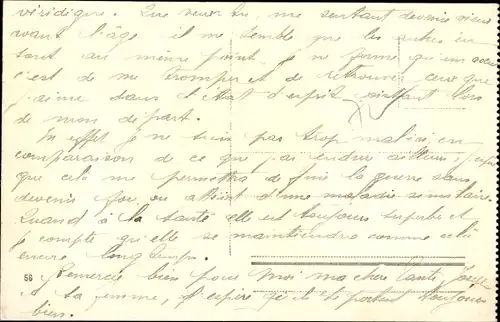 véridique. Que veux tu, me sentant devenir vieux
avant l'âge il me semble que les autres en
sont au même point. Je ne forme qu'un vœu
c'est de me tromper et de retrouver ceux que
j'aime dans l'état d'esprit existant lors
de mon départ.
En effet je ne suis pas trop malheureux en
comparaison de ce que j'ai enduré ailleurs, j'espère
que cela me permettra de finir la guerre sans
devenir fou ou atteint d'une maladie similaire.
Quand à la santé elle est toujours superbe et
je compte qu'elle se maintiendra comme cela
encore longtemps.
56 Remercie bien pour moi ma chère tante,
et sa femme, j'espère qu'ils se portent toujours
bien.